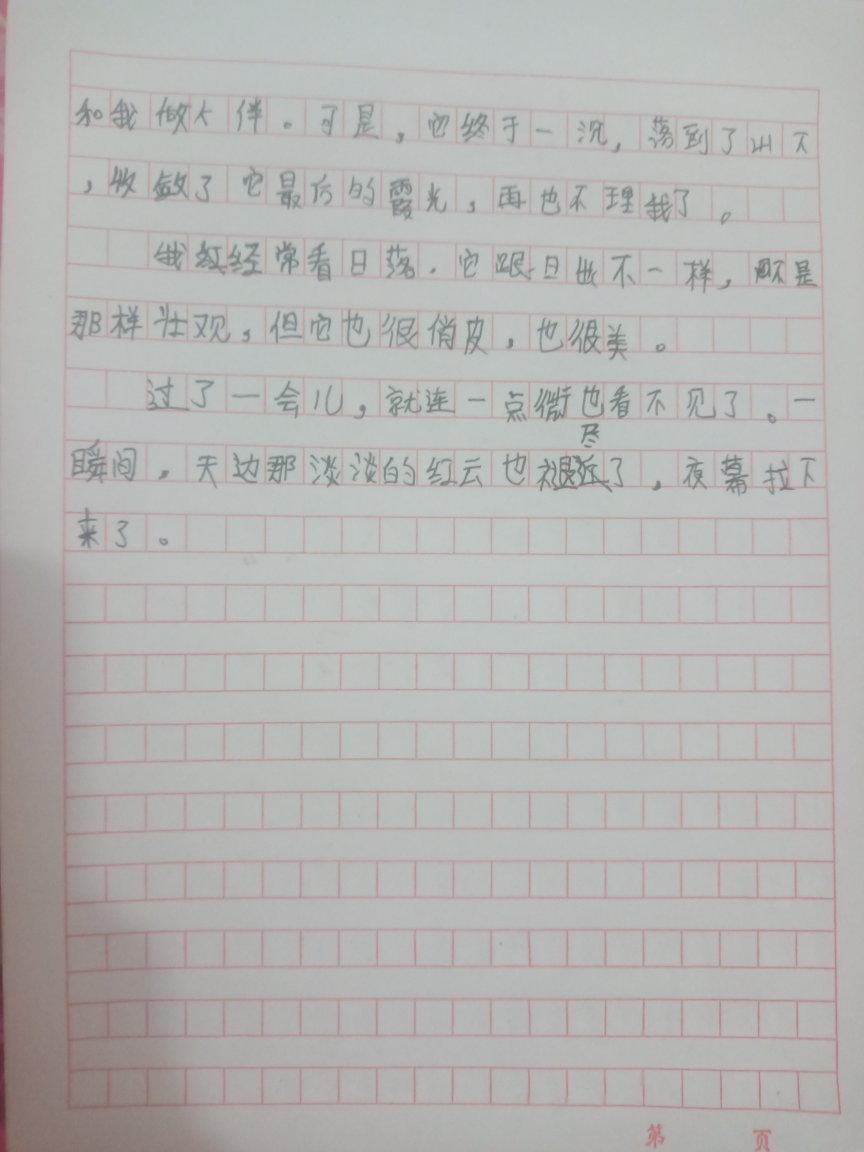 和我做个伴。可是，它终于一沉，落到了山下
，收敛了它最后的霞光，再也不理我了。
我经常看日落。它跟日出不一样，不是
那样壮观，但它也很俏皮，也很美。
过了一会儿，就连一点微也看不见了。一
尽
瞬间，天边那淡淡的红云也褪了，夜幕拉下
来了。
第 页